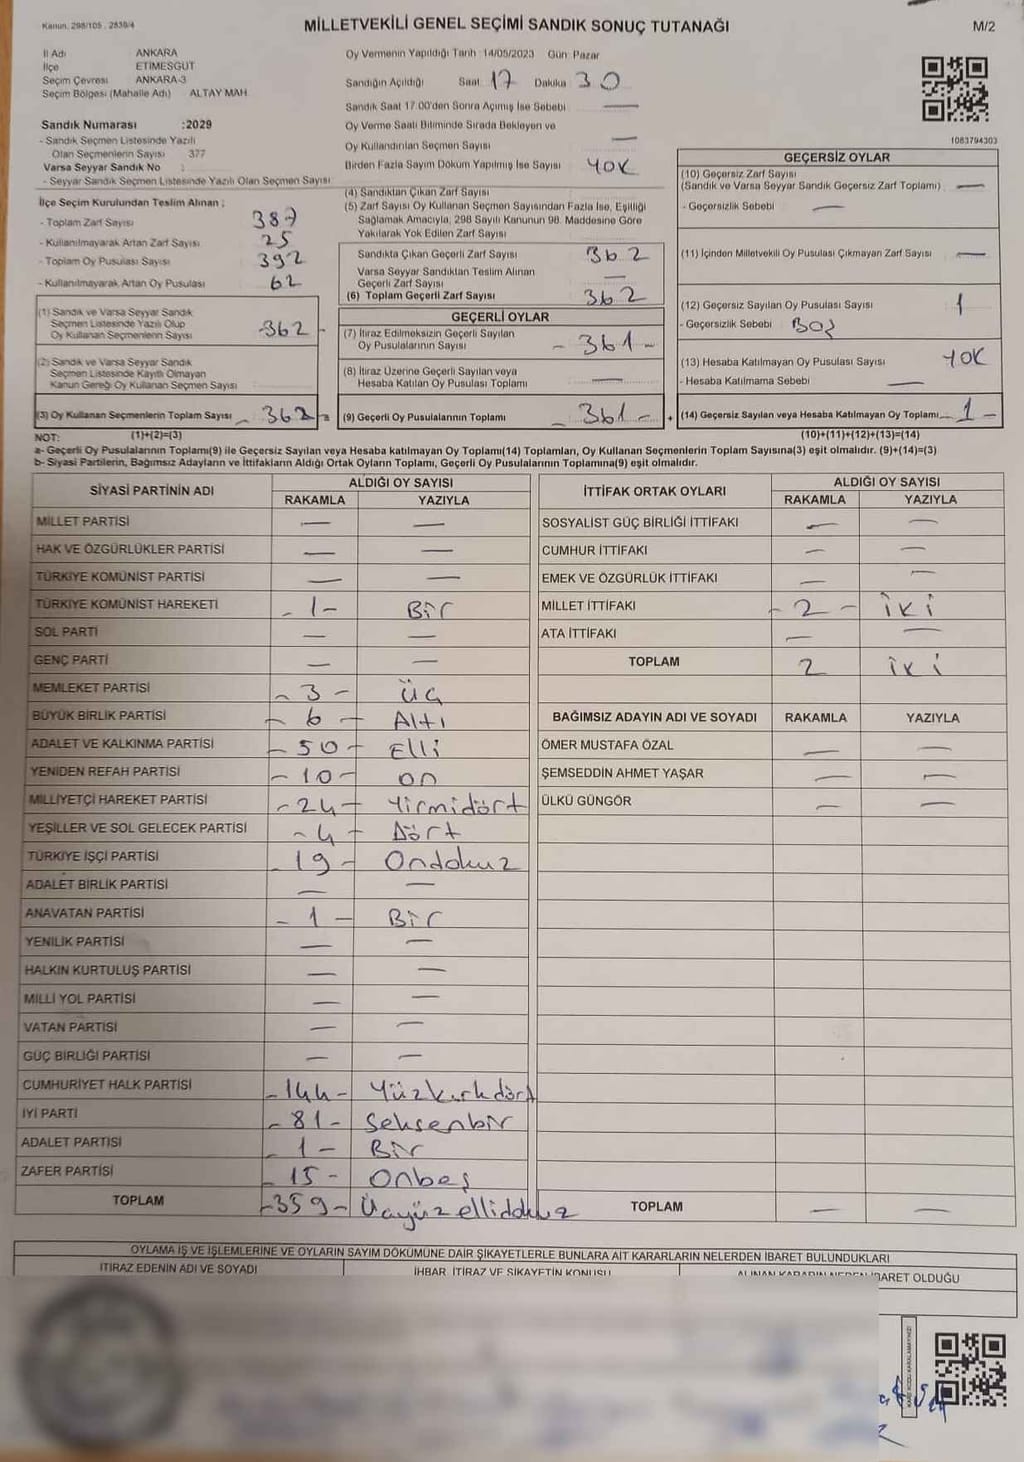 Kanun. 298/105 , 2839/4
MİLLETVEKİLİ GENEL SEÇİMİ SANDIK SONUÇ TUTANAĞI
M/2
İl Adı ANKARA
İlçe ETİMESGUT
Seçim Çevresi ANKARA-3
Seçim Bölgesi (Mahalle Adı) ALTAY MAH.
Sandık Numarası :2029
- Sandık Seçmen Listesinde Yazılı
Olan Seçmenlerin Sayısı 377
Varsa Seyyar Sandık No :
- Seyyar Sandık Seçmen Listesinde Yazılı Olan Seçmen Sayısı
Oy Vermenin Yapıldığı Tarih :14/05/2023 Gün: Pazar
Sandığın Açıldığı Saat 17 Dakika 30
Sandık Saat 17.00'den Sonra Açımış İse Sebebi —
Oy Verme Saati Bitiminde Sırada Bekleyen ve
Oy Kullandırılan Seçmen Sayısı —
Birden Fazla Sayım Döküm Yapılmış İse Sayısı YOK
1083794303
İlçe Seçim Kurulundan Teslim Alınan :
- Toplam Zarf Sayısı 387
- Kullanılmayarak Artan Zarf Sayısı 25
- Toplam Oy Pusulası Sayısı 392
- Kullanılmayarak Artan Oy Pusulası 62
(1) Sandık ve Varsa Seyyar Sandık
Seçmen Listesinde Yazılı Olup
Oy Kullanan Seçmenlerin Sayısı -362-
(2) Sandık ve Varsa Seyyar Sandık
Seçmen Listesinde Kayıtlı Olmayan
Kanun Gereği Oy Kullanan Seçmen Sayısı
(3) Oy Kullanan Seçmenlerin Toplam Sayısı - 362 - =
(4) Sandıktan Çıkan Zarf Sayısı
(5) Zarf Sayısı Oy Kullanan Seçmen Sayısından Fazla İse, Eşitliği
Sağlamak Amacıyla, 298 Sayılı Kanunun 98. Maddesine Göre
Yakılarak Yok Edilen Zarf Sayısı
Sandıkta Çıkan Geçerli Zarf Sayısı 362
Varsa Seyyar Sandıktan Teslim Alınan
Geçerli Zarf Sayısı —
(6) Toplam Geçerli Zarf Sayısı 362
GEÇERLİ OYLAR
(7) İtiraz Edilmeksizin Geçerli Sayılan
Oy Pusulalarının Sayısı - 361 -
(8) İtiraz Üzerine Geçerli Sayılan veya
Hesaba Katılan Oy Pusulası Toplamı —
(9) Geçerli Oy Pusulalarının Toplamı - 361 - +
GEÇERSİZ OYLAR
(10) Geçersiz Zarf Sayısı
(Sandık ve Varsa Seyyar Sandık Geçersiz Zarf Toplamı) —
- Geçersizlik Sebebi —
(11) İçinden Milletvekili Oy Pusulası Çıkmayan Zarf Sayısı —
(12) Geçersiz Sayılan Oy Pusulası Sayısı 1
- Geçersizlik Sebebi BOŞ
(13) Hesaba Katılmayan Oy Pusulası Sayısı YOK
- Hesaba Katılmama Sebebi —
(14) Geçersiz Sayılan veya Hesaba Katılmayan Oy Toplamı - 1 -
NOT: (1)+(2)=(3) (10)+(11)+(12)+(13)=(14)
a- Geçerli Oy Pusulalarının Toplamı(9) ile Geçersiz Sayılan veya Hesaba katılmayan Oy Toplamı(14) Toplamları, Oy Kullanan Seçmenlerin Toplam Sayısına(3) eşit olmalıdır. (9)+(14)=(3)
b- Siyasi Partilerin, Bağımsız Adayların ve İttifakların Aldığı Ortak Oyların Toplamı, Geçerli Oy Pusulalarının Toplamına(9) eşit olmalıdır.
SİYASİ PARTİNİN ADI ALDIĞI OY SAYISI
RAKAMLA YAZIYLA
MİLLET PARTİSİ — —
HAK VE ÖZGÜRLÜKLER PARTİSİ — —
TÜRKİYE KOMÜNİST PARTİSİ — —
TÜRKİYE KOMÜNİST HAREKETİ - 1 - Bir
SOL PARTİ — —
GENÇ PARTİ — —
MEMLEKET PARTİSİ - 3 - Üç
BÜYÜK BİRLİK PARTİSİ - 6 - Altı
ADALET VE KALKINMA PARTİSİ - 50 - Elli
YENİDEN REFAH PARTİSİ - 10 - on
MİLLİYETÇİ HAREKET PARTİSİ - 24 - Yirmidört
YEŞİLLER VE SOL GELECEK PARTİSİ - 4 - Dört
TÜRKİYE İŞÇİ PARTİSİ - 19 - Ondokuz
ADALET BİRLİK PARTİSİ — —
ANAVATAN PARTİSİ - 1 - Bir
YENİLİK PARTİSİ — —
HALKIN KURTULUŞ PARTİSİ — —
MİLLİ YOL PARTİSİ — —
VATAN PARTİSİ — —
GÜÇ BİRLİĞİ PARTİSİ — —
CUMHURİYET HALK PARTİSİ - 144 - Yüzkırkdört
İYİ PARTİ - 81 - Seksenbir
ADALET PARTİSİ - 1 - Bir
ZAFER PARTİSİ - 15 - Onbeş
TOPLAM - 359 - Üçyüzellidokuz
İTTİFAK ORTAK OYLARI ALDIĞI OY SAYISI
RAKAMLA YAZIYLA
SOSYALİST GÜÇ BİRLİĞİ İTTİFAKI — —
CUMHUR İTTİFAKI — —
EMEK VE ÖZGÜRLÜK İTTİFAKI — —
MİLLET İTTİFAKI - 2 - iki
ATA İTTİFAKI — —
TOPLAM 2 iki
BAĞIMSIZ ADAYIN ADI VE SOYADI RAKAMLA YAZIYLA
ÖMER MUSTAFA ÖZAL — —
ŞEMSEDDİN AHMET YAŞAR — —
ÜLKÜ GÜNGÖR — —
TOPLAM — —
OYLAMA İŞ VE İŞLEMLERİNE VE OYLARIN SAYIM DÖKÜMÜNE DAİR ŞİKAYETLERLE BUNLARA AİT KARARLARIN NELERDEN İBARET BULUNDUKLARI
İTİRAZ EDENİN ADI VE SOYADI
İHBAR, İTİRAZ VE ŞİKAYETİN KONUSU
ALINAN KARARIN NEDEN İBARET OLDUĞU